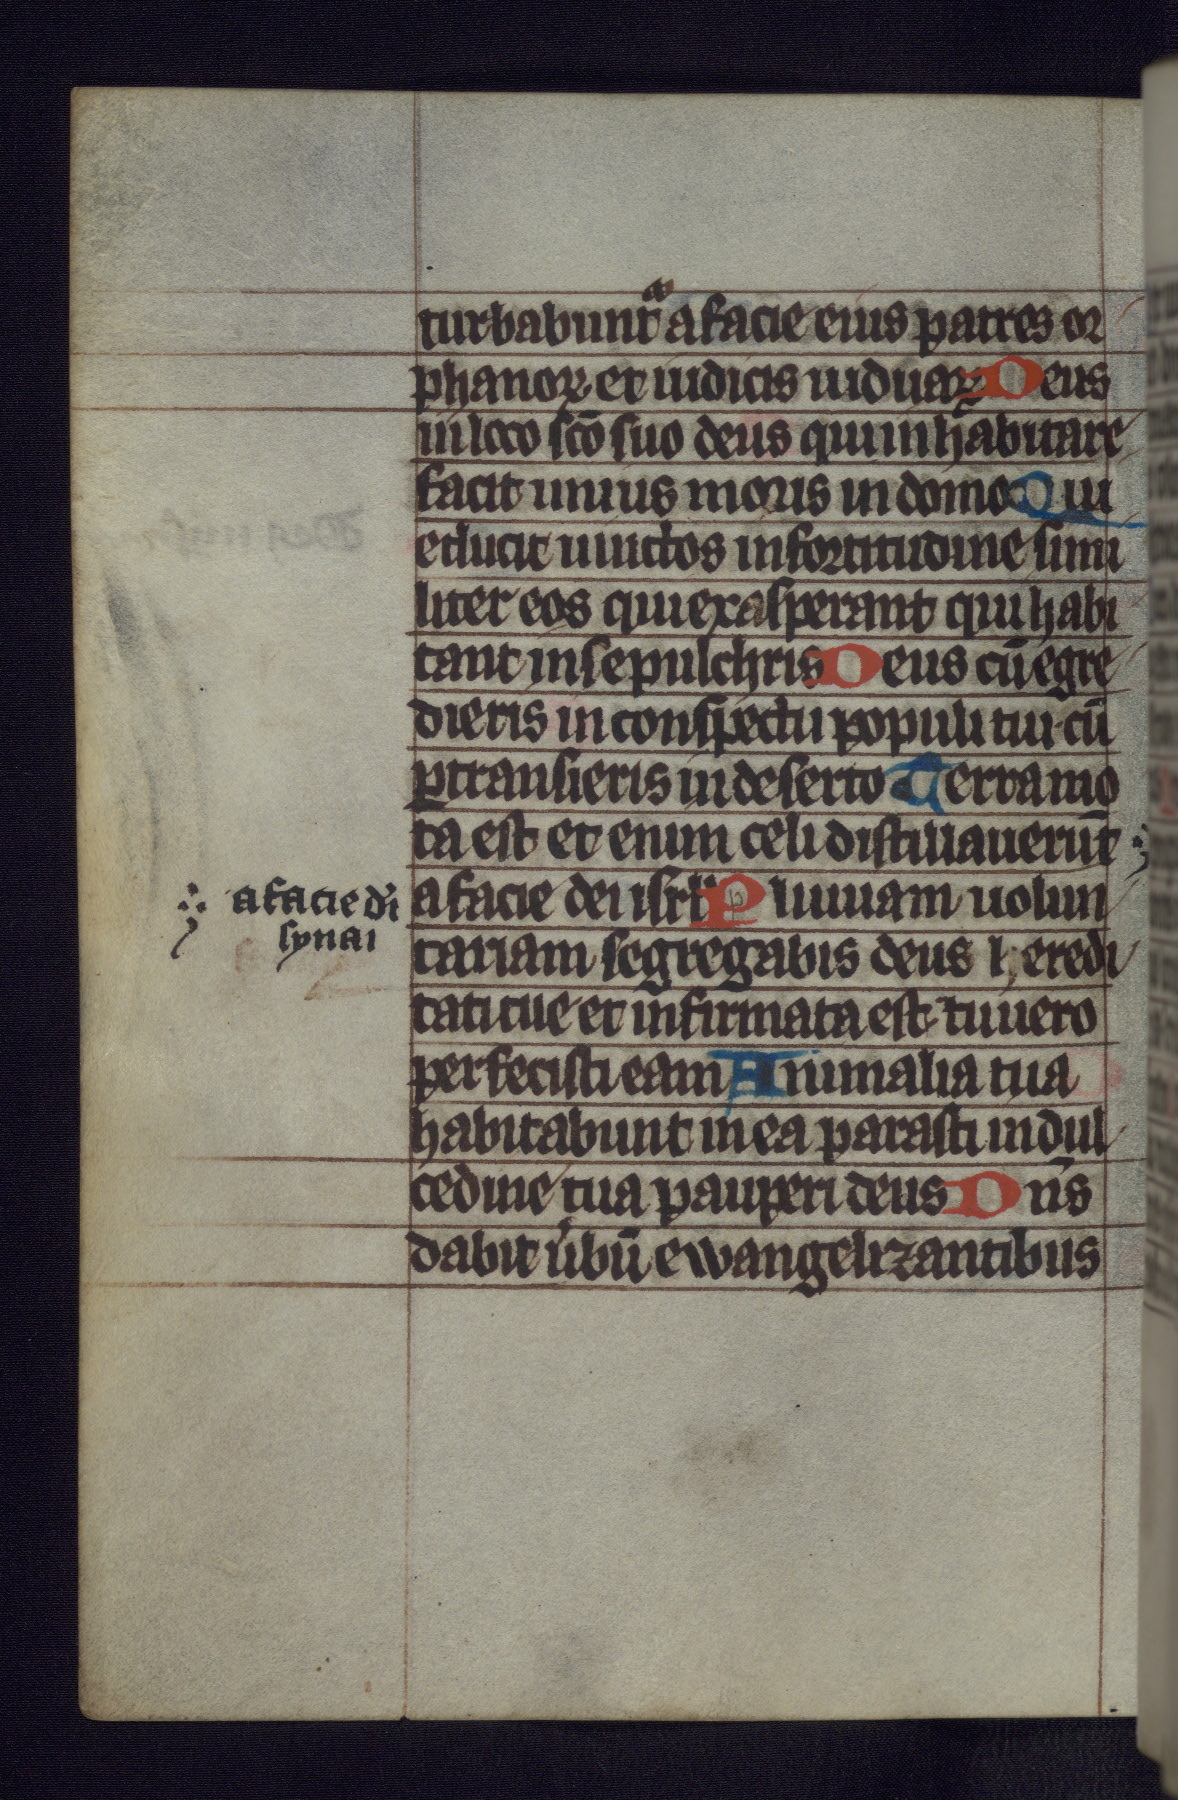 turbabunt᷑ a facie eius patres or
phanoꝝ et iudicis uiduaꝝ Deus
in loco sc̄o suo deus qui inhabitare
facit unius moris in domo Qui
educit uinctos in fortitudine simi
liter eos qui exasperant qui habi
tant in sepulchris Deus cū egre
dieris in conspectu populi tui cū
ꝑtransieris in deserto Terra mo
ta est et enim celi distillauerūt
a facie dei isrl̄ Pluuiam uolun
tariam segregabis deus heredi
tati tue et infirmata est tu uero
perfecisti eam Animalia tua
habitabunt in ea parasti in dul
cedine tua pauperi deus Dn̄s
dabit ūbū ewangelizantibus
a facie di
synai